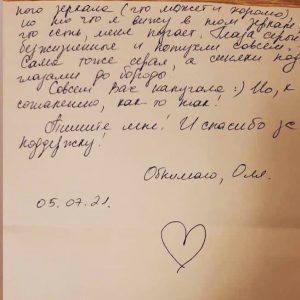 ного зеркала (что может и хорошо)
но то что я вижу в том зеркале
что есть, меня пугает. Глаза серые
безжизненные и потухли совсем.
Сама тоже серая, а синяки под
глазами до бороды.
Совсем Вас напугала :) Но, к
сожалению, как-то так!
Пишите мне! И спасибо за
поддержку!
Обнимаю, Оля.
05.07.21.